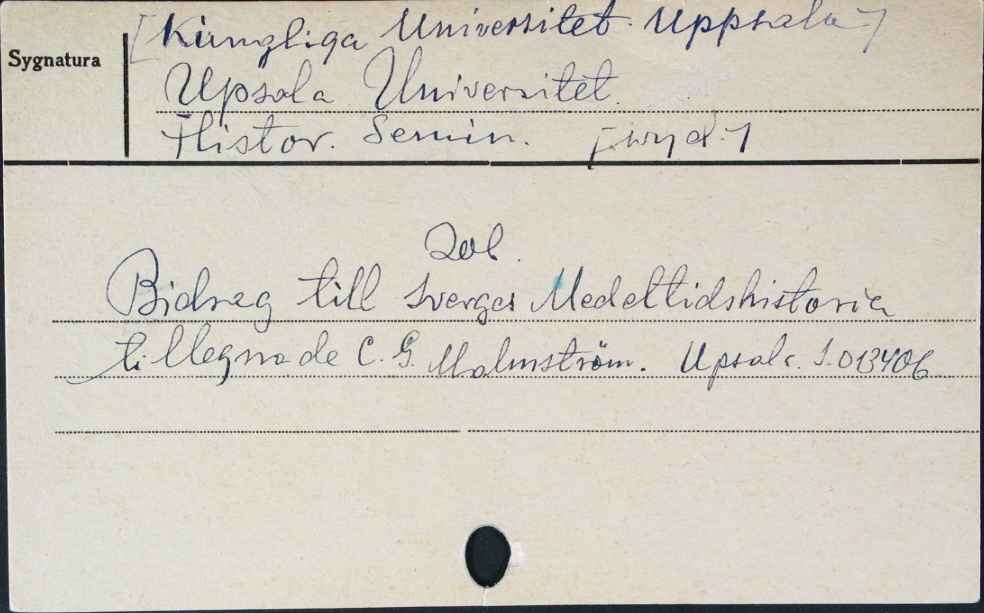 [Kungliga Universitet Uppsala]
Sygnatura
Upsala Universitet.
Histor. Semin. [wyd.]
Zob.
Bidrag till Sverges Medeltidshistoria
tillegnade C. G. Malmström. Upsala. S.013406